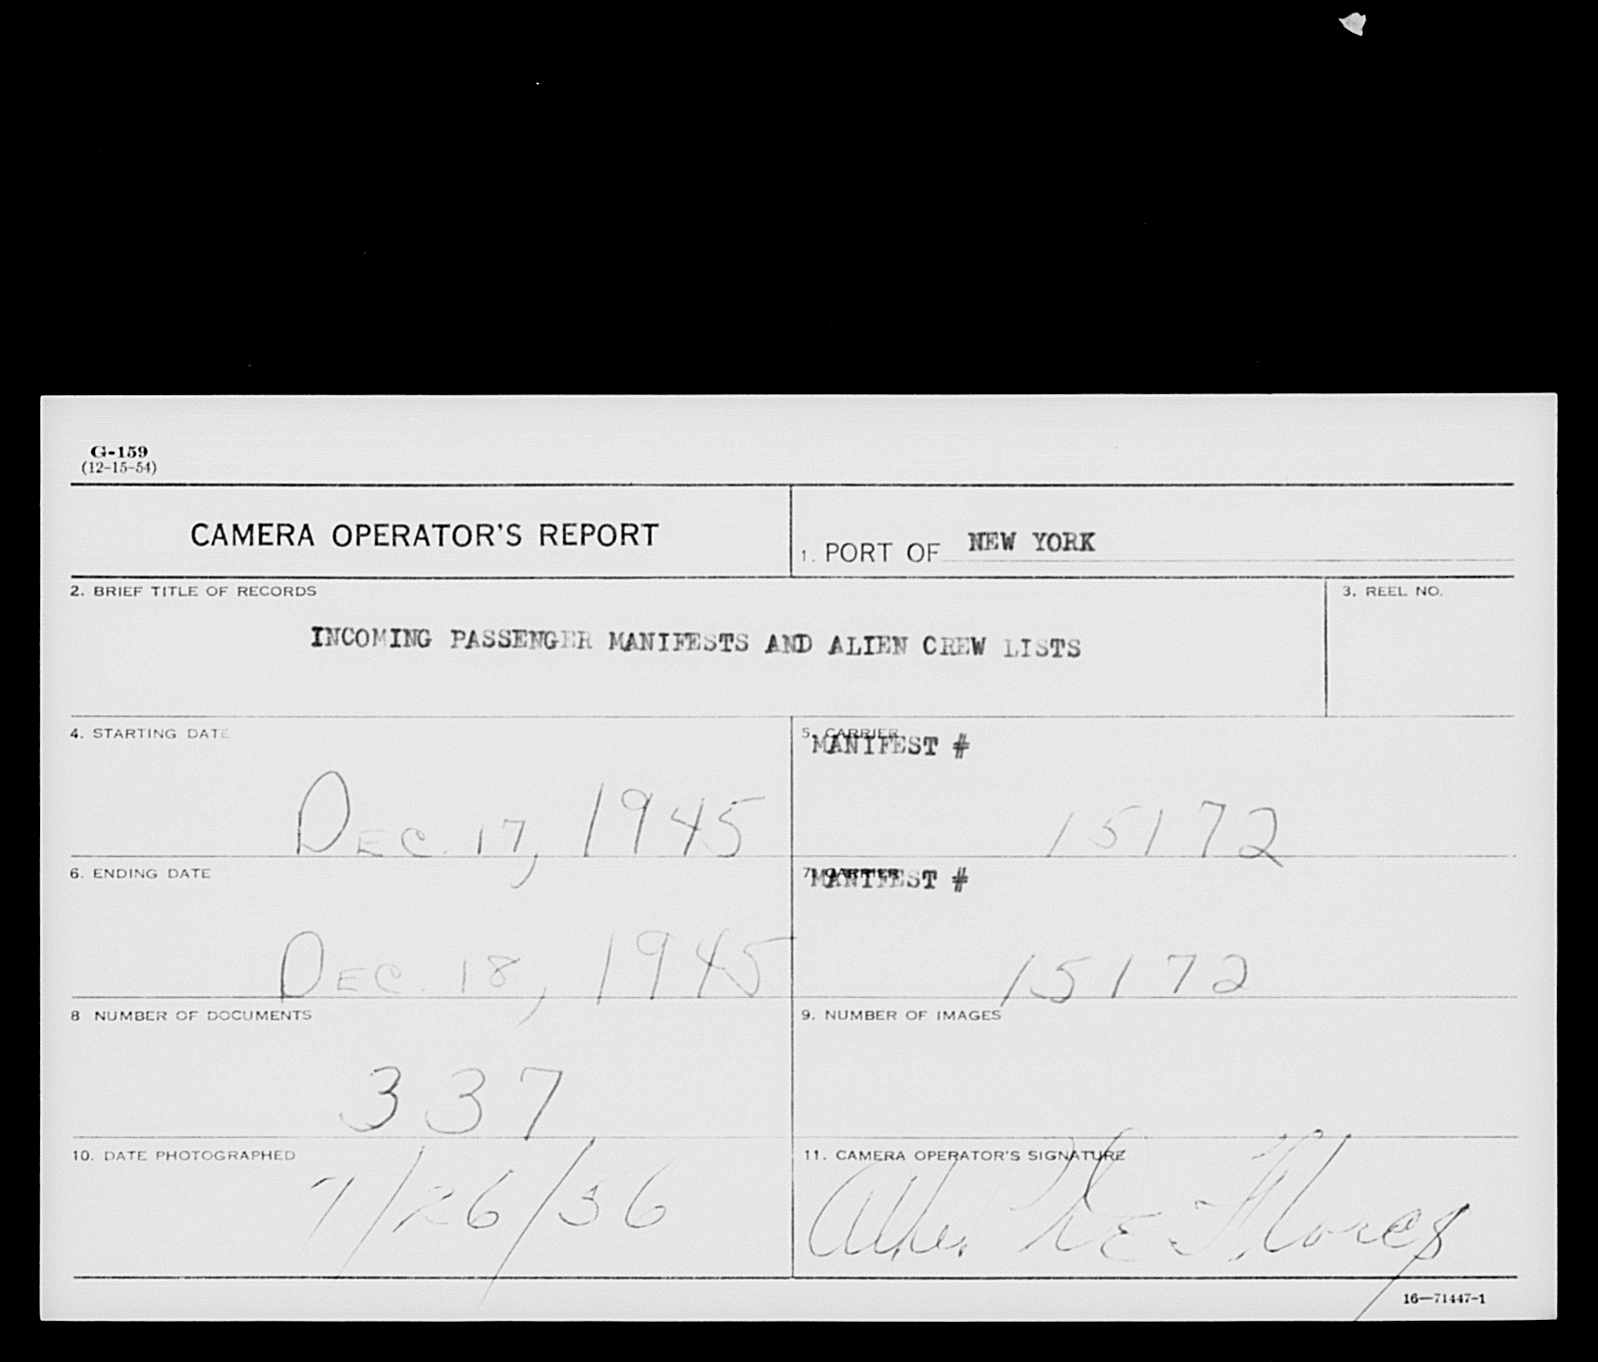 G-159
(12-15-54)
CAMERA OPERATOR'S REPORT
1. PORT OF NEW YORK
2. BRIEF TITLE OF RECORDS
INCOMING PASSENGER MANIFESTS AND ALIEN CREW LISTS
3. REEL NO.
4. STARTING DATE
DEC. 17, 1945
5. CARRIER
MANIFEST #
15172
6. ENDING DATE
DEC. 18, 1945
7. CARRIER
MANIFEST #
15172
8 NUMBER OF DOCUMENTS
337
9. NUMBER OF IMAGES
10. DATE PHOTOGRAPHED
7/26/56
11. CAMERA OPERATOR'S SIGNATURE
16—71447-1